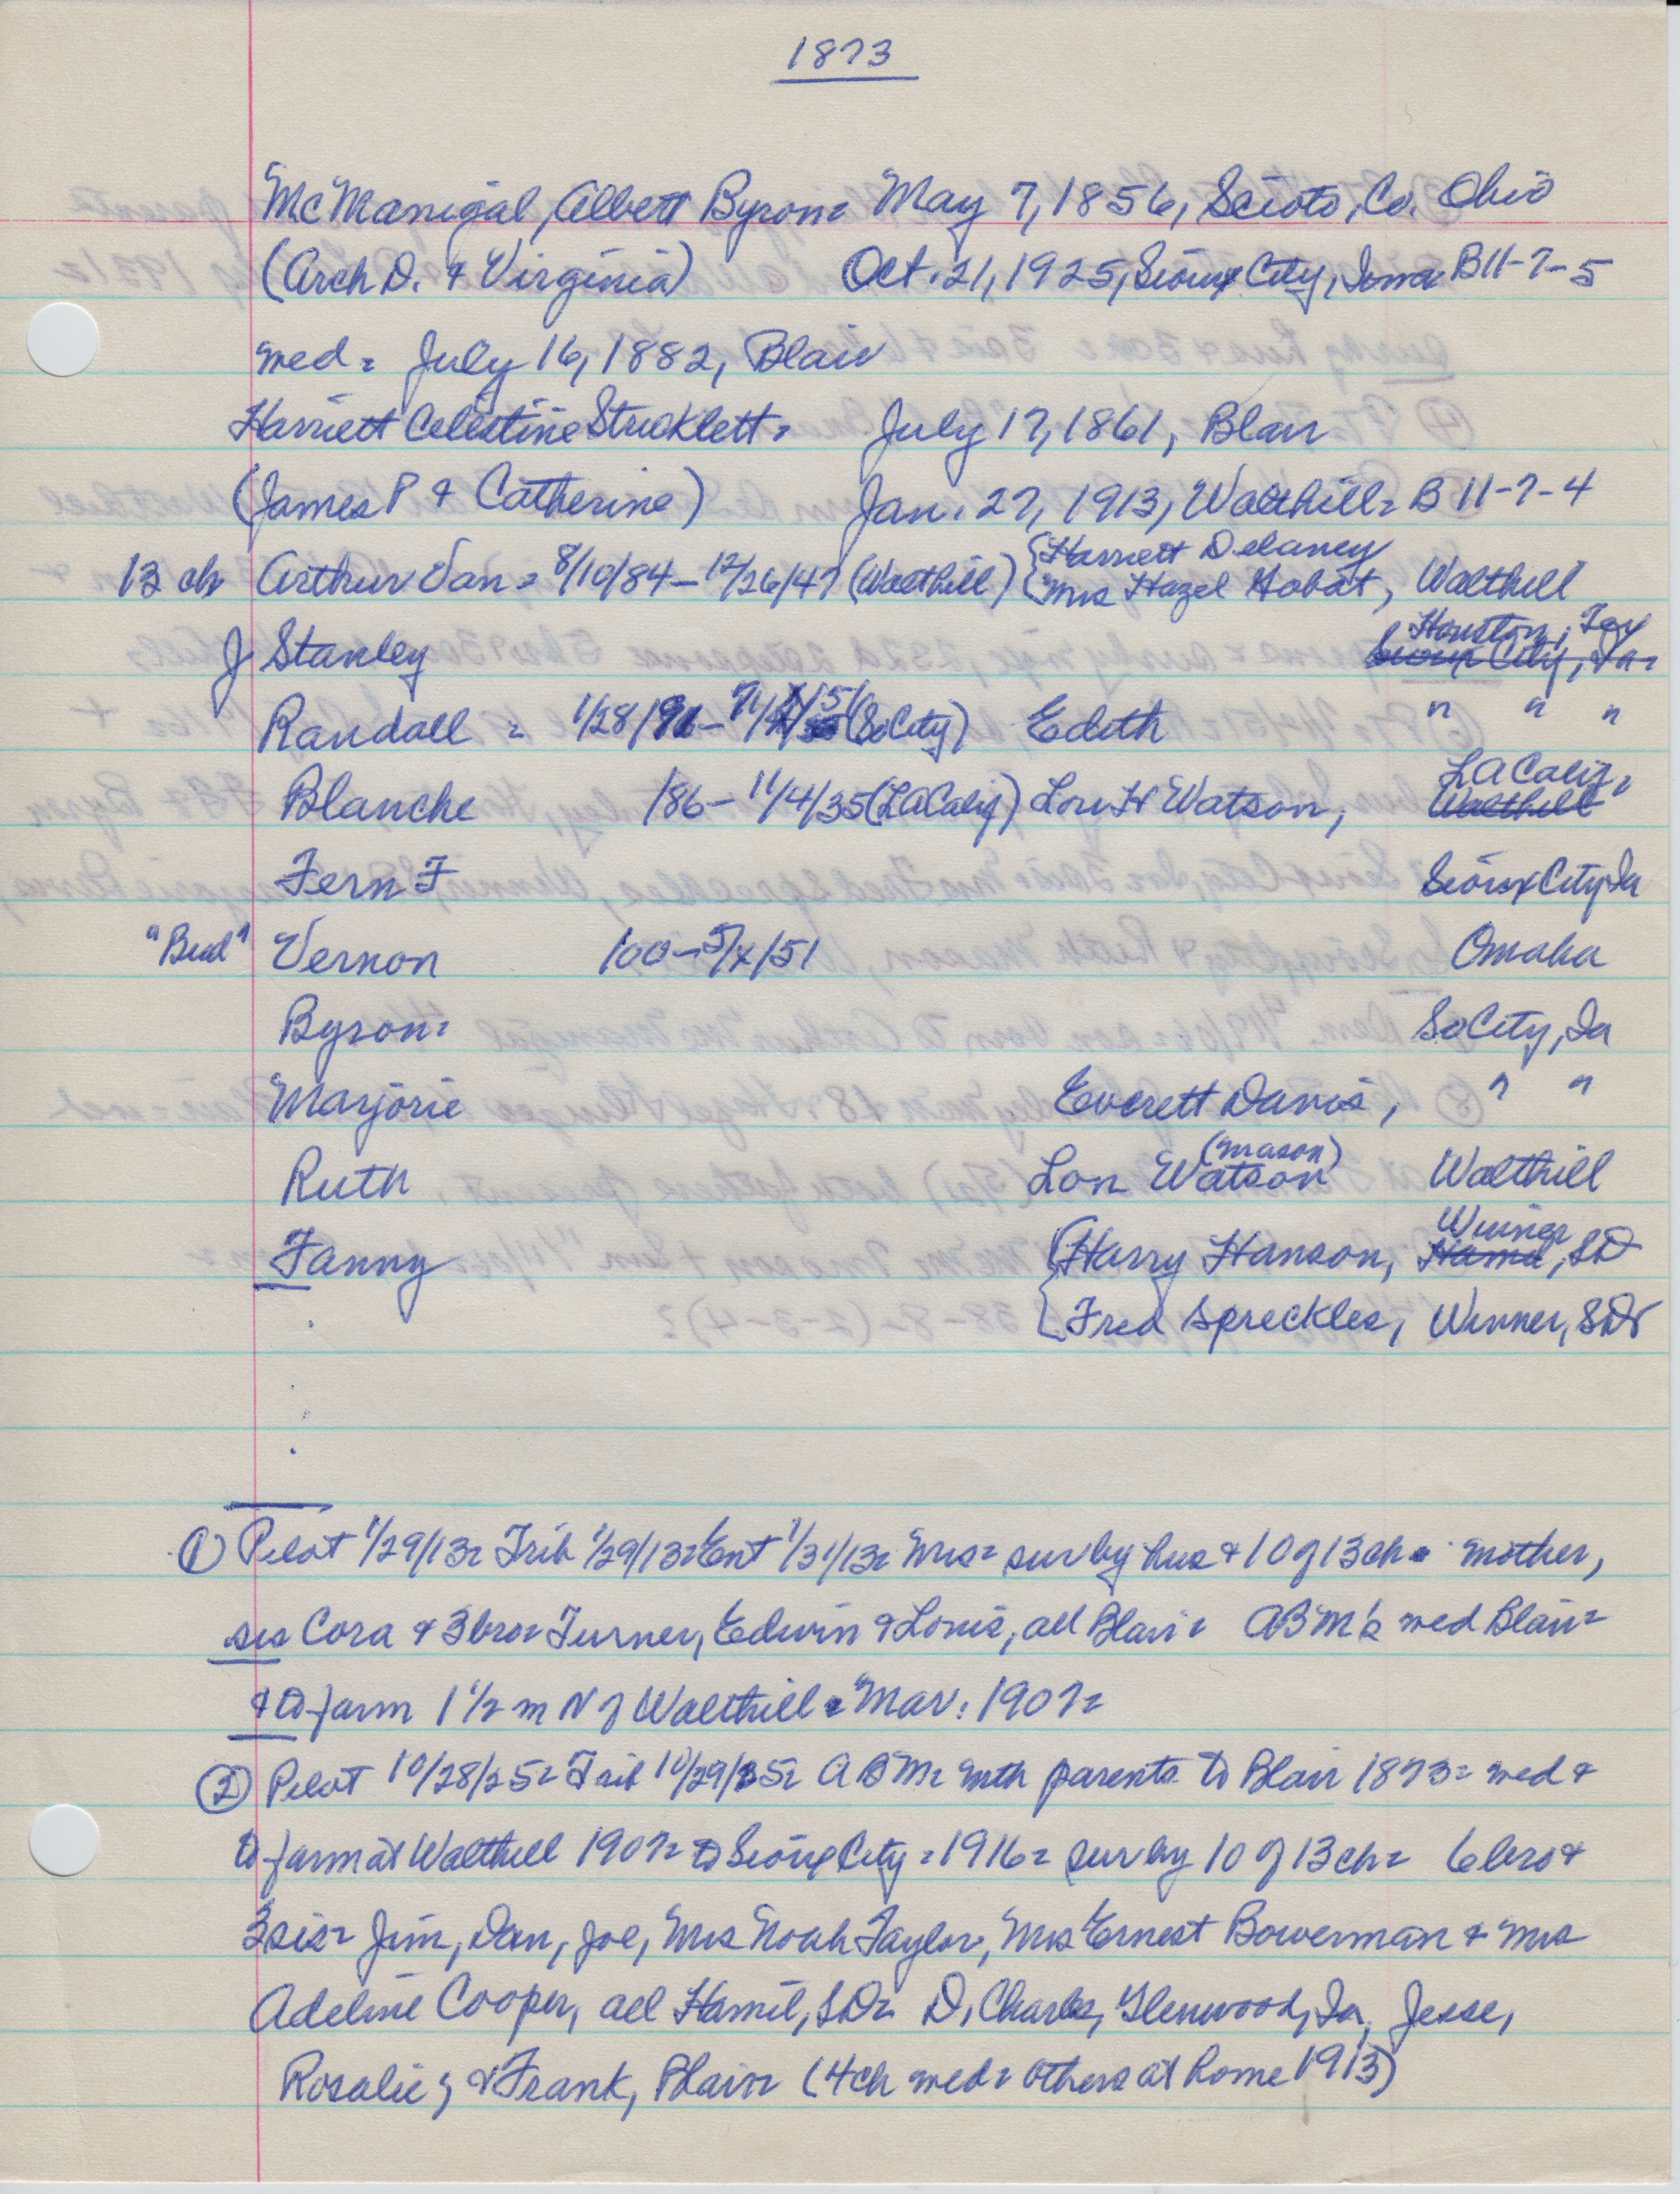 1873
McManigal, Albert Byron = May 7, 1856, Scioto, Co. Ohio
(Arch D. & Virginia) Oct. 21, 1925, Sioux City, Iowa B11-7-5
med = July 16, 1882, Blair
Harriett Celestine Stricklett = July 17, 1861, Blair
(James P & Catherine) Jan. 27, 1913, Walthill = B 11-7-4
13 ch Arthur Van = 8/10/84 - 12/26/47 (Walthill) { Harriett Delaney
Mrs Hazel Hobat, Walthill
Houston, Tex
J Stanley Sioux City, Ia =
Randall = 1/28/91 - (SoCity) Edith " " "
LA Calif,
Blanche /86 - 11/4/35 (LACalif) Lou H Watson, Walthill
Fern F Sioux City, Ia
"Bud" Vernon /00 - 5/x/51 Omaha
Byron = SoCity, Ia
Marjorie Everett Davis, " "
(Mason)
Ruth Lon Watson Walthill
Winner
Fanny { Harry Hanson, Hamil, SD
{ Fred Spreckles, Winner, SD
① Pilot 1/29/13 = Trib 1/29/13 = Ent 1/31/13 = Mrs = sur by hus & 10 of 13 ch = mother,
sis Cora & 3 bro = Turner, Edwin & Louis, all Blair = ABM's med Blair =
& to farm 1 1/2 m N of Walthill = Mar. 1907 =
② Pilot 10/28/25 = Trib 10/29/25 = A B M = with parents to Blair 1873 = med &
to farm at Walthill 1907 = to Sioux City = 1916 = sur by 10 of 13 ch = 6 bro &
3 sis = Jim, Dan, Joe, Mrs Noah Taylor, Mrs Ernest Bowerman & Mrs
Adeline Cooper, all Hamil, SD = D, Charles, Glenwood, Ia, Jesse,
Rosalie & Frank, Blair = (4 ch med = others at home 1913)